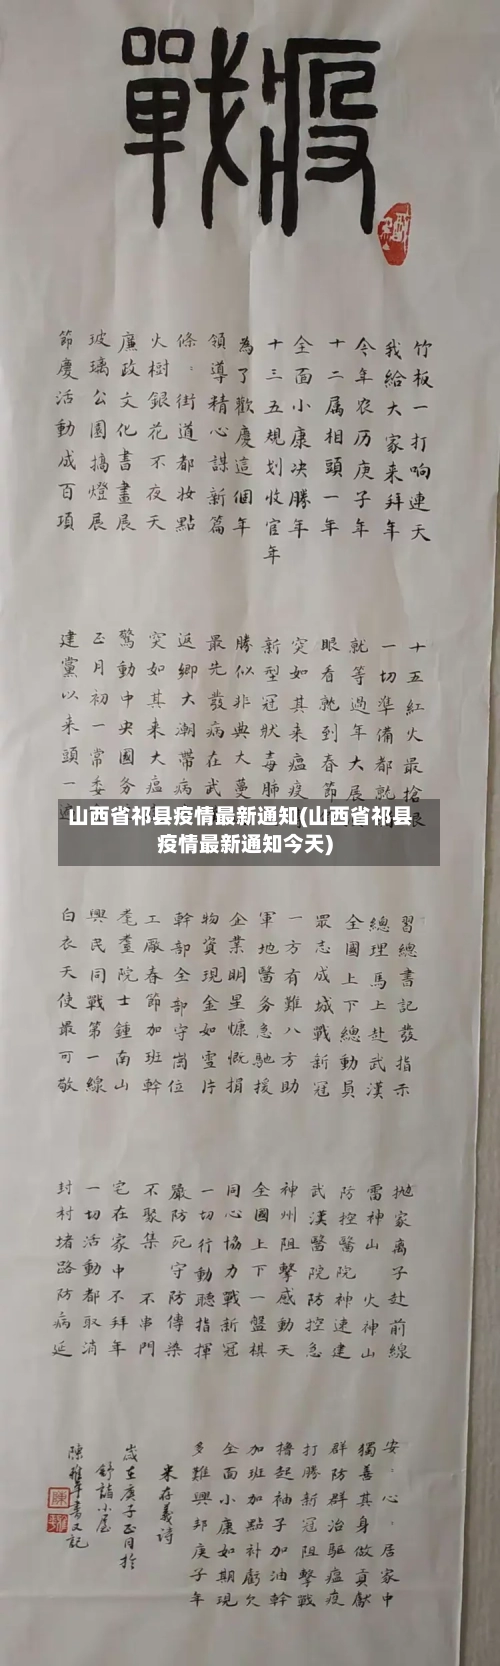 戰疫
竹板一打响連天
我給大家来拜年
今年农历庚子年
十二属相頭一年
全面小康决勝年
十三五規划收官年
為了歡慶這個年
領導精心謀新篇
條：街道都妝點
火樹銀花不夜天
廉政文化書畫展
玻璃公園搞燈展
節慶活動成百項
十五紅火最搶
一切準備都就
就等過年大展
眼看就到春節
突如其来瘟疫
新型冠狀毒肺
勝似非典大蔓
最先發病在武
返鄉大潮帶病
突如其来大瘟
驚動中央國务
正月初一常委
建黨以来頭一
山西省祁县疫情最新通知(山西省祁县
疫情最新通知今天)
習總書記發指示
總理馬上赴武漢
全國上下總動員
眾志成城戰新冠
一方有難八方助
軍地醫务急馳援
企業明星慷慨捐
物資現金如雪片
幹部全部守崗位
工厰春節加班幹
耄耋院士鍾南山
興民同戰第一線
白衣天使最可敬
抛家離子赴前線
雷神山 火神山
防控醫院神速建
武漢醫院防控急
神州阻擊感動天
全國上下一盤棋
同心協力戰新冠
一切行動聽指揮
嚴防死守防傳染
不聚集 不串門
宅在家中不拜年
一切活動都取消
封村堵路防病延
安：心：居家中
獨善其身做貢獻
群防群治驅瘟疫
打勝新冠阻擊戰
擼起袖子加油幹
加班加點补虧欠
全面小康如期現
多難興邦庚子年
米存義詩
歲在庚子正月於
舒詣小屋
陳雅平書又記